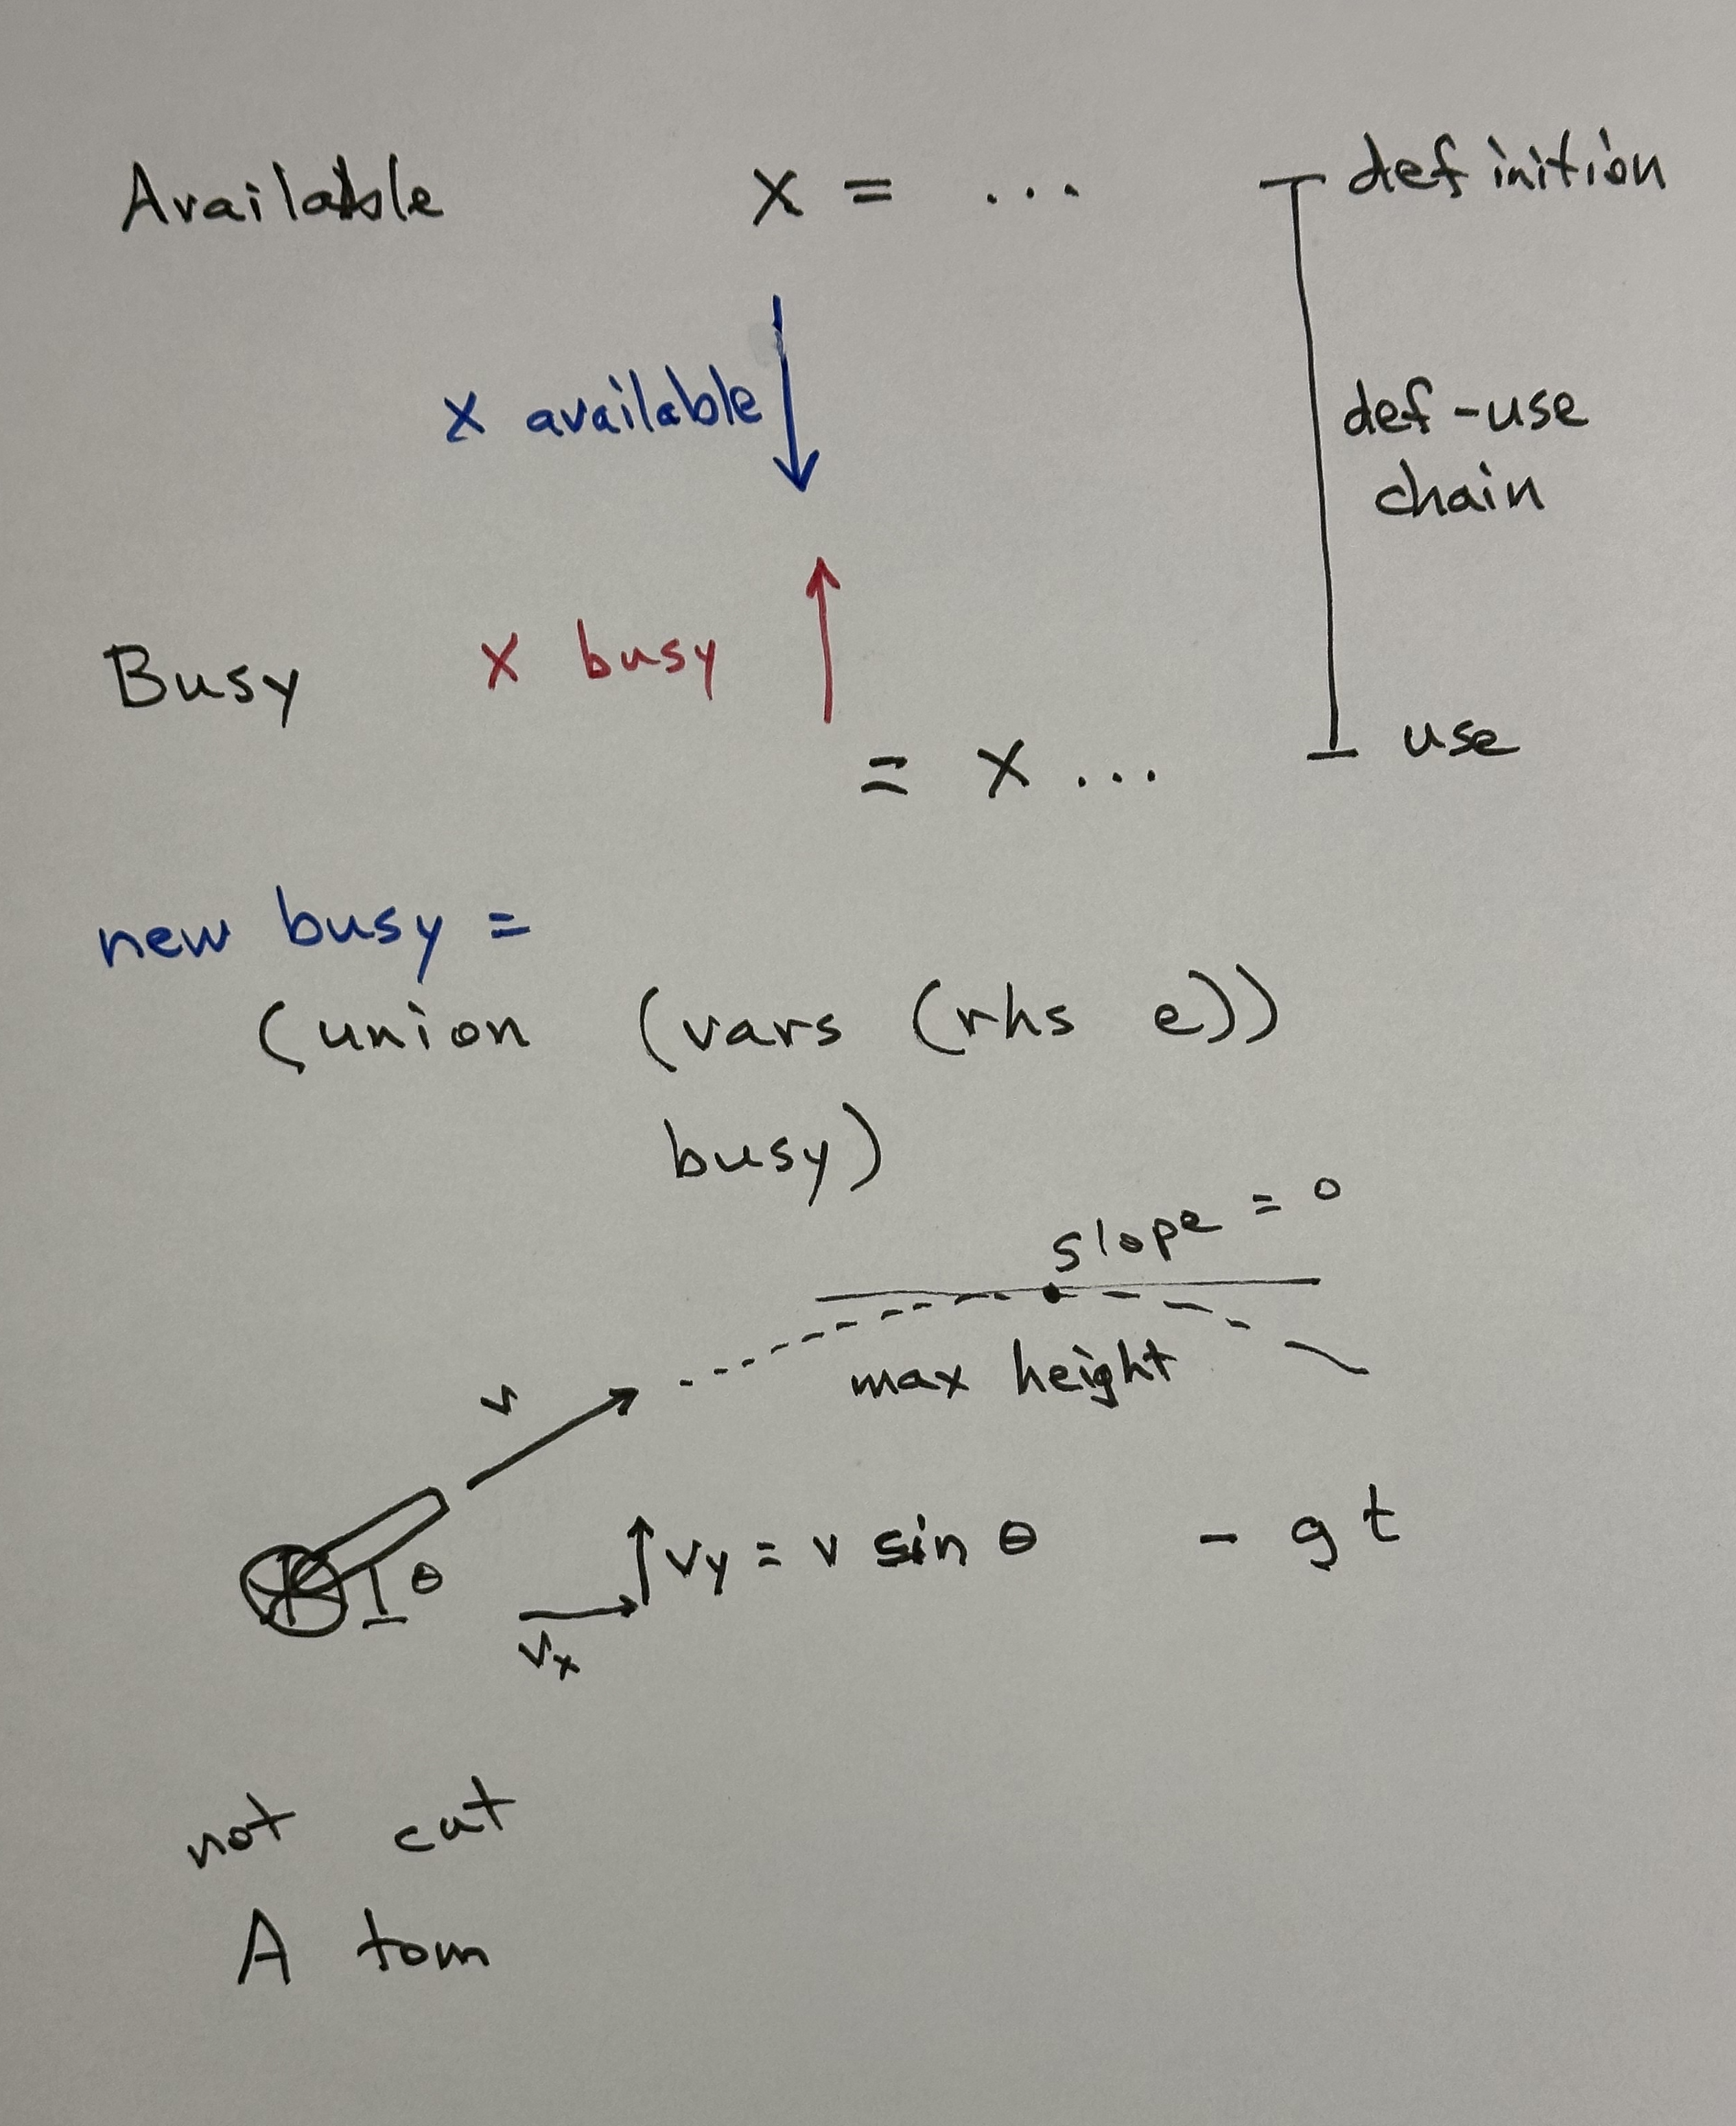 Available x = ... definition
x available def-use
chain
Busy x busy
= x ... use
new busy =
(union (vars (rhs e))
busy)
slope = 0
max height
v
θ vy = v sin θ - gt
vx
not cut
A tom